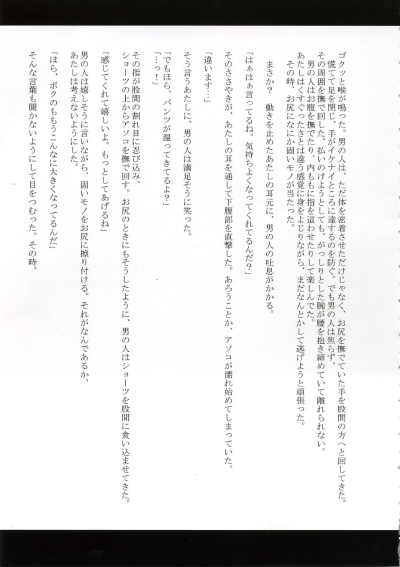 ゴクッと喉が鳴った。男の人は、ただ体を密着させただけじゃなく、お尻を撫でていた手を股間の方へと回してきた。
慌てて足を閉じ、手がイケナイところに達するのを防ぐ。でも男の人は焦らず、
その周囲を撫で回した。払いのけようとしても、がっしりとした腕が腰を抱き締めていて離れられない。
男の人はお腹を撫でたり、内ももに指を這わせたりして楽しんでた。
あたしはくすぐったさとは違う感覚に身をよじりながら、まだなんとかして逃げようと頑張った。
その時、お尻になにか固いモノが当たった。
まさか？　動きを止めたあたしの耳元に、男の人の吐息がかかる。
「はぁはぁ言ってるね。気持ちよくなってくれてるんだ？」
そのささやきが、あたしの耳を通して下腹部を直撃した。あろうことか、アソコが濡れ始めてしまっていた。
「違います…」
そう言うあたしに、男の人は満足そうに笑った。
「でもほら、パンツが湿ってきてるよ？」
「…っ！」
その指が股間の割れ目に忍び込み、
ショーツの上からアソコを撫で回す。お尻のときにもそうしたように、男の人はショーツを股間に食い込ませてきた。
「感じてくれて嬉しいよ。もっとしてあげるね」
男の人は嬉しそうに言いながら、固いモノをお尻に擦り付ける。それがなんであるか、
あたしは考えないようにした。
「ほら、ボクのももうこんなに大きくなってるんだ」
そんな言葉も聞かないようにして目をつむった。その時。